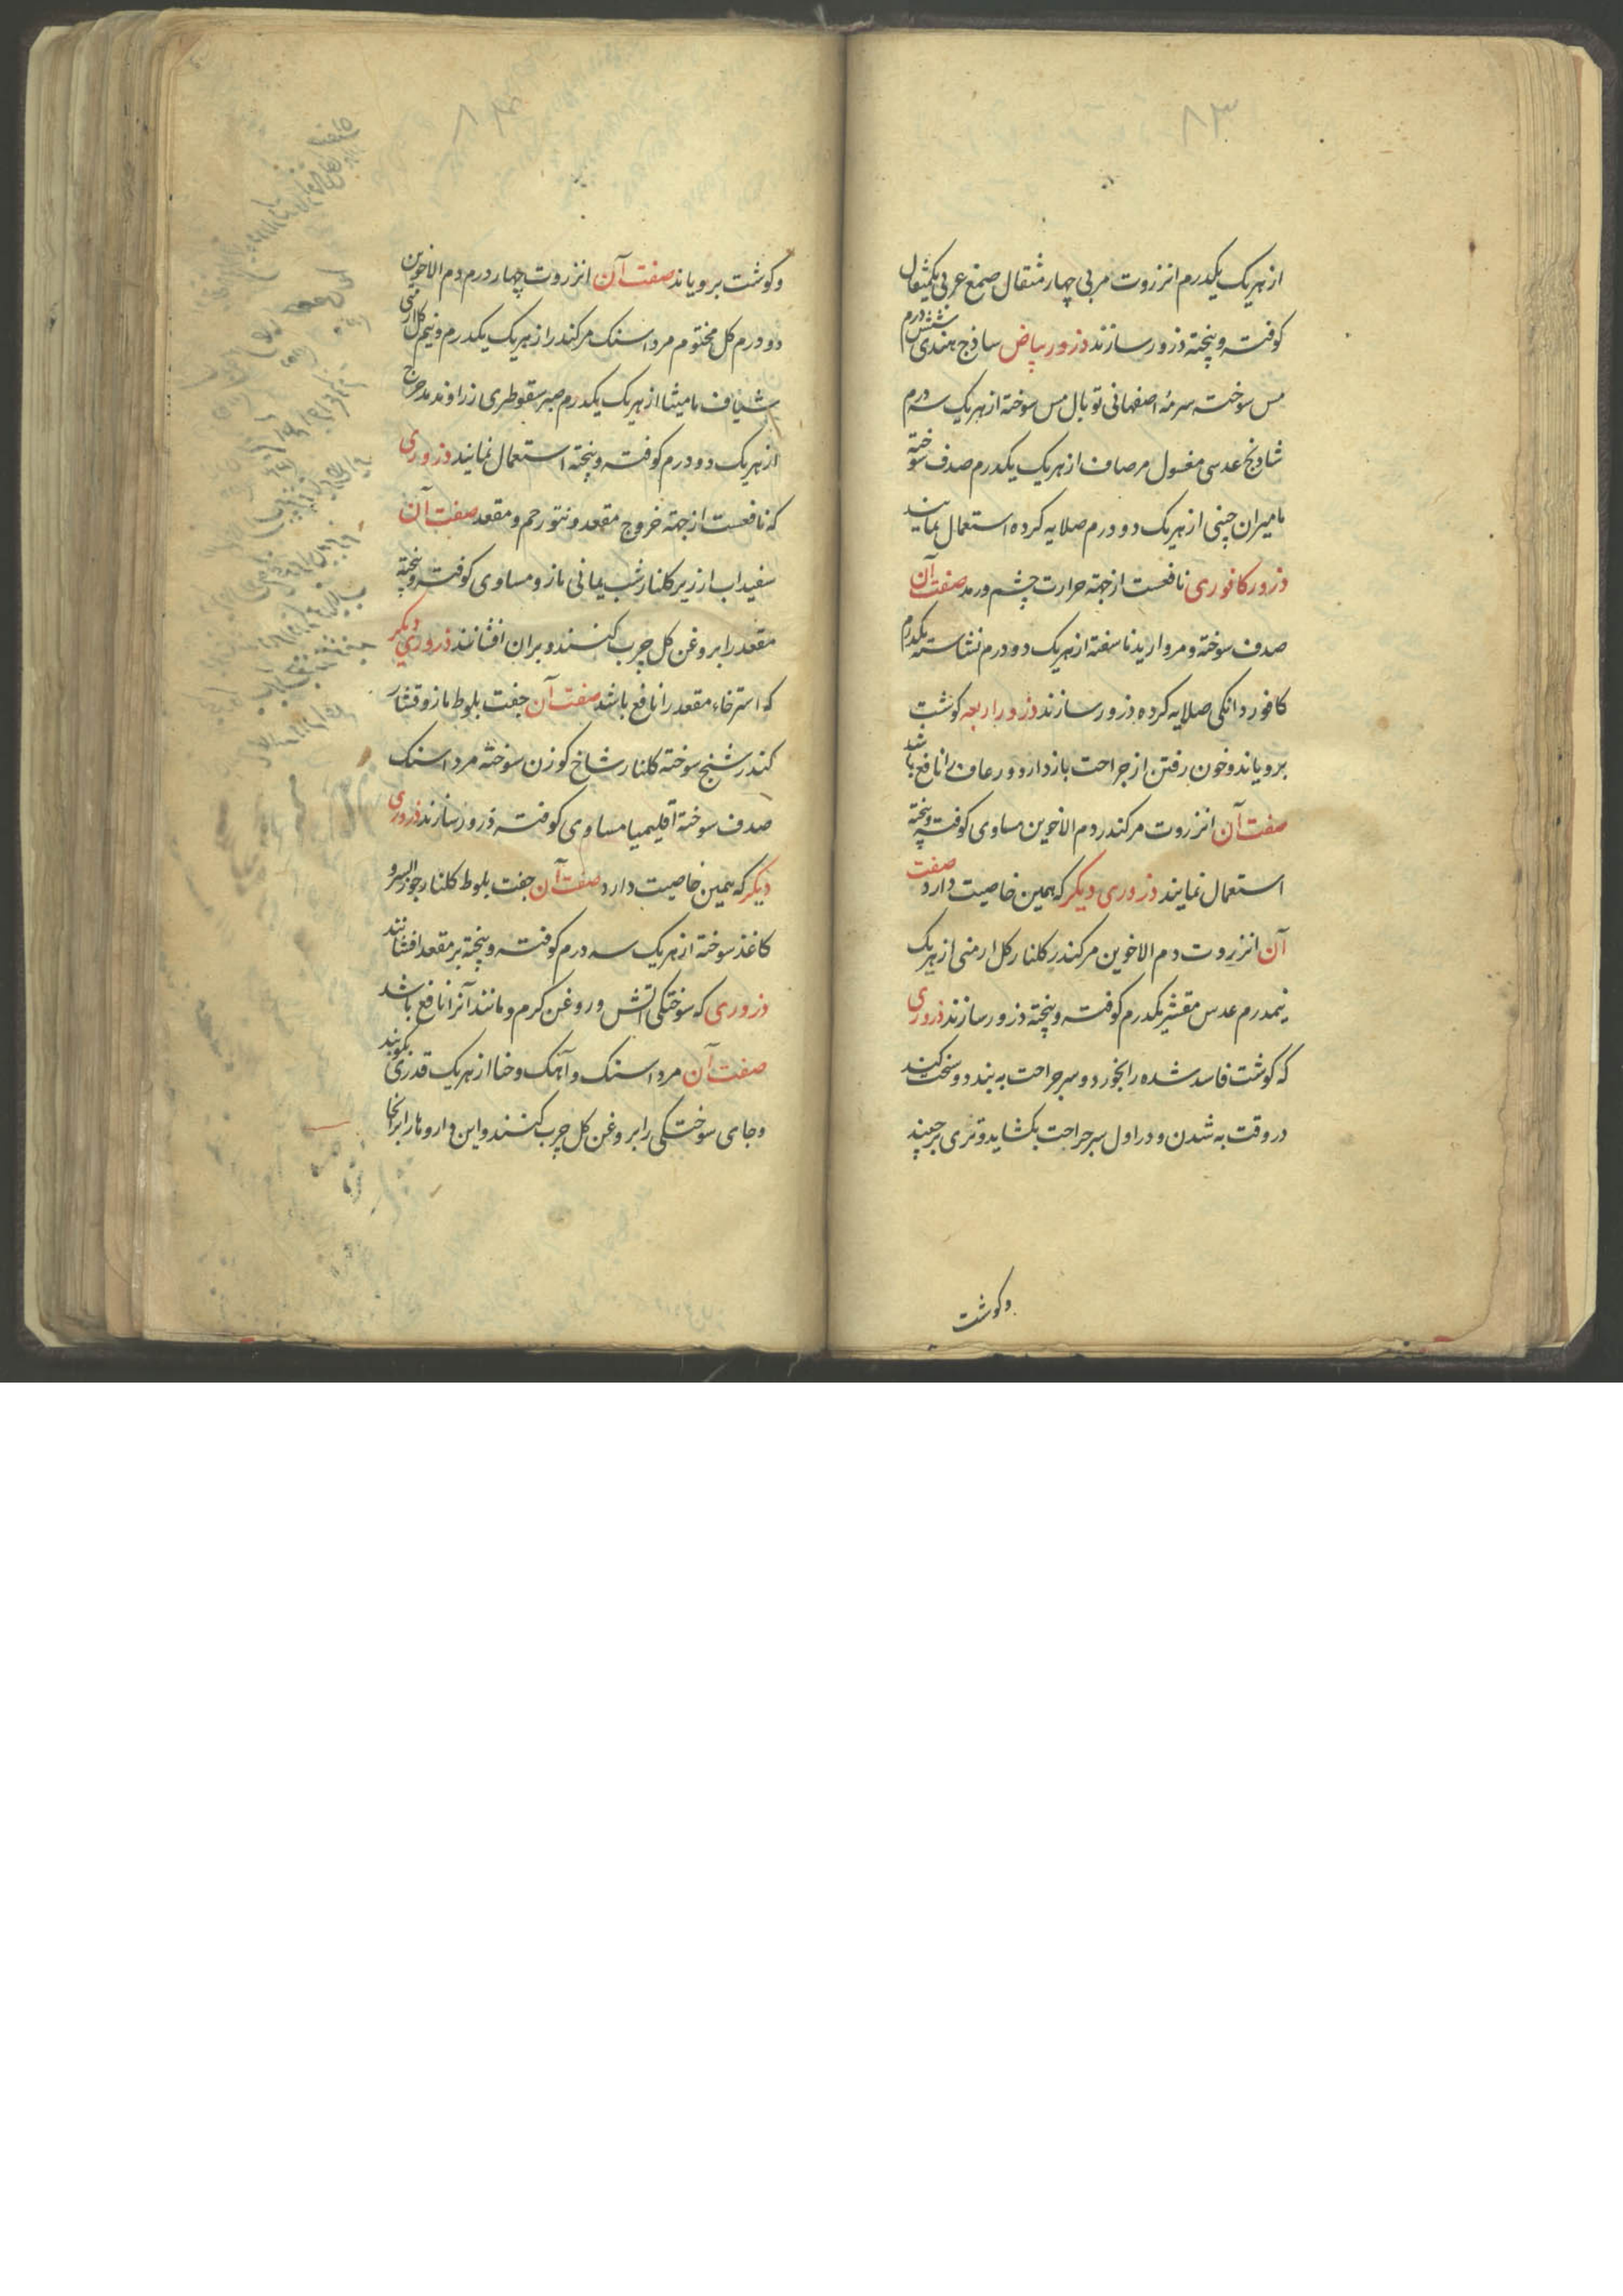 ۸۳
از هریک یکدرم انزروت مربی چهار مثقال صمغ عربی یکمثقال
کوفته و پخته ذرور سازند ذرور بیاض ساذج هندی شش درم
مس سوخته سرمهٔ اصفهانی توبال مس سوخته از هریک سه درم
شادنج عدسی مغسول مر صاف از هریک یکدرم صدف سوخته
مامیران چینی از هریک دو درم صلایه کرده استعمال نمایند
ذرور کافوری نافعست از جهة حرارت چشم و رمد صفت آن
صدف سوخته و مروارید ناسفته از هریک دو درم نشاسته یکدرم
کافور دانکی صلایه کرده ذرور سازند ذرور اربعه کوشت
برویاند و خون رفتن از جراحت باز دارد و رعاف را نافع باشد
صفت آن انزروت مر کندر دم الاخوین مساوی کوفته و پخته
استعمال نمایند ذروری دیکر که همین خاصیت دارد صفت
آن انزروت دم الاخوین مر کندر کلنار کل ارمنی از هریک
نیمدرم عدس مقشر یکدرم کوفته و پخته ذرور سازند ذروری
که کوشت فاسد شده را بخورد و سر جراحت به بندد و سخت کند
در وقت به شدن و در اول سر جراحت بکشاید و تری برچیند
وکوشت
۸۴
وکوشت برویاند صفت آن انزروت چهار درم دم الاخوین
دو درم کل مختوم مرداسنک مر کندر از هریک یکدرم و نیم کل ارمنی
شیاف مامیثا از هریک یکدرم صبر سقوطری زراوند مدحرج
از هریک دو درم کوفته و پخته استعمال نمایند ذروری
که نافعست از جهة خروج مقعد و نتو رحم و مقعد صفت آن
سفیداب ارزیز کلنار شب یمانی مازو مساوی کوفته و پخته
مقعد را بروغن کل چرب کنند و بران افشانند ذروری دیکر
که استرخاء مقعد را نافع باشد صفت آن جفت بلوط مازو قشار
کندر شنج سوخته کلنار شاخ کوزن سوخته مرداسنک
صدف سوخته اقلیمیا مساوی کوفته ذرور سازند ذروری
دیکر که همین خاصیت دارد صفت آن جفت بلوط کلنار جوزالسرو
کاغذ سوخته از هریک سه درم کوفته و پخته بر مقعد افشانند
ذروری که سوختکی آتش و روغن کرم و مانند آنرا نافع باشد
صفت آن مرداسنک و آهک و حنا از هریک قدری بکوبند
و جای سوختکی را بروغن کل چرب کنند و این داروها را برانجا